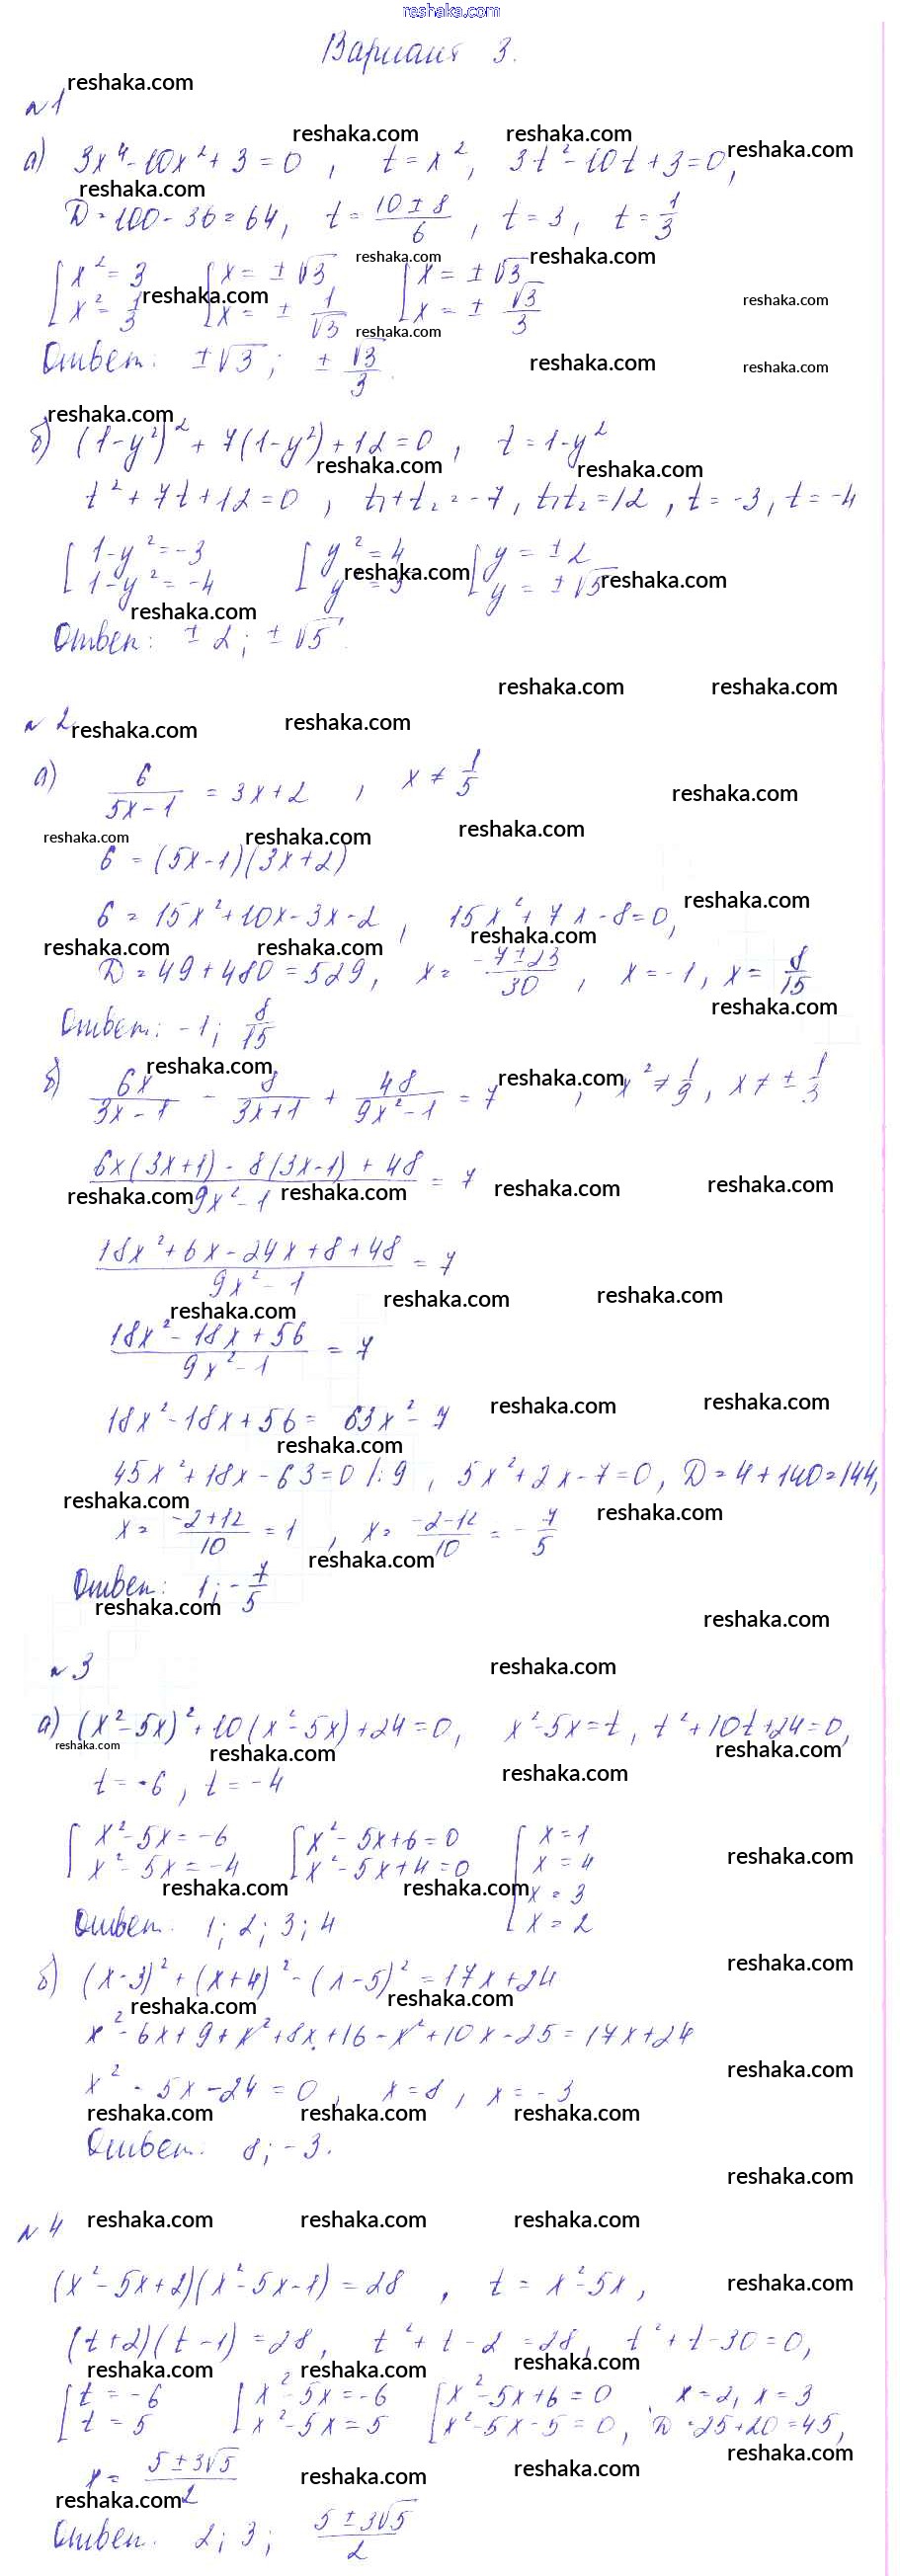 reshaka.com
Вариант 3.
reshaka.com
№1
reshaka.com reshaka.com reshaka.com
а) 3x⁴ - 10x² + 3 = 0 , t = x² , 3t² - 10t + 3 = 0 ,
reshaka.com
D = 100 - 36 = 64, t = (10 ± 8)/6 , t = 3 , t = 1/3
reshaka.com reshaka.com
[ x² = 3 [ x = ± √3 [ x = ± √3
reshaka.com reshaka.com
x² = 1/3 x = ± 1/√3 x = ± √3/3
reshaka.com
Ответ: ± √3 ; ± √3/3 .
reshaka.com reshaka.com
reshaka.com
б) (1-y²)² + 7(1-y²) + 12 = 0 , t = 1-y²
reshaka.com reshaka.com
t² + 7t + 12 = 0 , t₁ + t₂ = -7 , t₁t₂ = 12 , t = -3 , t = -4
[ 1-y² = -3 [ y² = 4 [ y = ± 2
reshaka.com reshaka.com
1-y² = -4 y² = 5 y = ± √5
reshaka.com
Ответ: ± 2 ; ± √5 .
reshaka.com reshaka.com
№2
reshaka.com reshaka.com
а) 6/(5x-1) = 3x+2 , x ≠ 1/5
reshaka.com
reshaka.com reshaka.com reshaka.com
6 = (5x-1)(3x+2)
reshaka.com
6 = 15x² + 10x - 3x - 2 , 15x² + 7x - 8 = 0 ,
reshaka.com reshaka.com reshaka.com
D = 49 + 480 = 529 , x = (-7 ± 23)/30 , x = -1 , x = 8/15
reshaka.com
Ответ: -1 ; 8/15
reshaka.com reshaka.com
б) 6x/(3x-1) - 8/(3x+1) + 48/(9x²-1) = 7 , x² ≠ 1/9 , x ≠ ± 1/3
(6x(3x+1) - 8(3x-1) + 48)/(9x²-1) = 7
reshaka.com reshaka.com reshaka.com reshaka.com
(18x² + 6x - 24x + 8 + 48)/(9x²-1) = 7
reshaka.com reshaka.com reshaka.com
(18x² - 18x + 56)/(9x²-1) = 7
18x² - 18x + 56 = 63x² - 7
reshaka.com reshaka.com
reshaka.com
45x² + 18x - 63 = 0 |: 9 , 5x² + 2x - 7 = 0 , D = 4 + 140 = 144,
reshaka.com reshaka.com
x = (-2+12)/10 = 1 , x = (-2-12)/10 = - 7/5
reshaka.com
Ответ: 1 ; - 7/5
reshaka.com reshaka.com
№3
reshaka.com
а) (x²-5x)² + 10(x²-5x) + 24 = 0 , x²-5x = t , t² + 10t + 24 = 0 ,
reshaka.com reshaka.com reshaka.com
t = -6 , t = -4
reshaka.com
[ x²-5x = -6 [ x²-5x+6 = 0 [ x = 1
x²-5x = -4 x²-5x+4 = 0 x = 4
reshaka.com reshaka.com reshaka.com
x = 3
Ответ. 1 ; 2 ; 3 ; 4 x = 2
reshaka.com
б) (x-3)² + (x+4)² - (x-5)² = 17x+24
reshaka.com reshaka.com
x² - 6x + 9 + x² + 8x + 16 - x² + 10x - 25 = 17x+24
reshaka.com
x² - 5x - 24 = 0 , x = 8 , x = -3
reshaka.com reshaka.com reshaka.com
Ответ. 8 ; -3.
reshaka.com
№4
reshaka.com reshaka.com reshaka.com
(x²-5x+2)(x²-5x-1) = 28 , t = x²-5x ,
reshaka.com
(t+2)(t-1) = 28 , t² + t - 2 = 28 , t² + t - 30 = 0 ,
reshaka.com reshaka.com reshaka.com
[ t = -6 [ x²-5x = -6 [ x²-5x+6 = 0 x = 2, x = 3
t = 5 x²-5x = 5 x²-5x-5 = 0 , D = 25+20 = 45 ,
reshaka.com
x = (5 ± 3√5)/2
reshaka.com reshaka.com reshaka.com
Ответ. 2 ; 3 ; (5 ± 3√5)/2